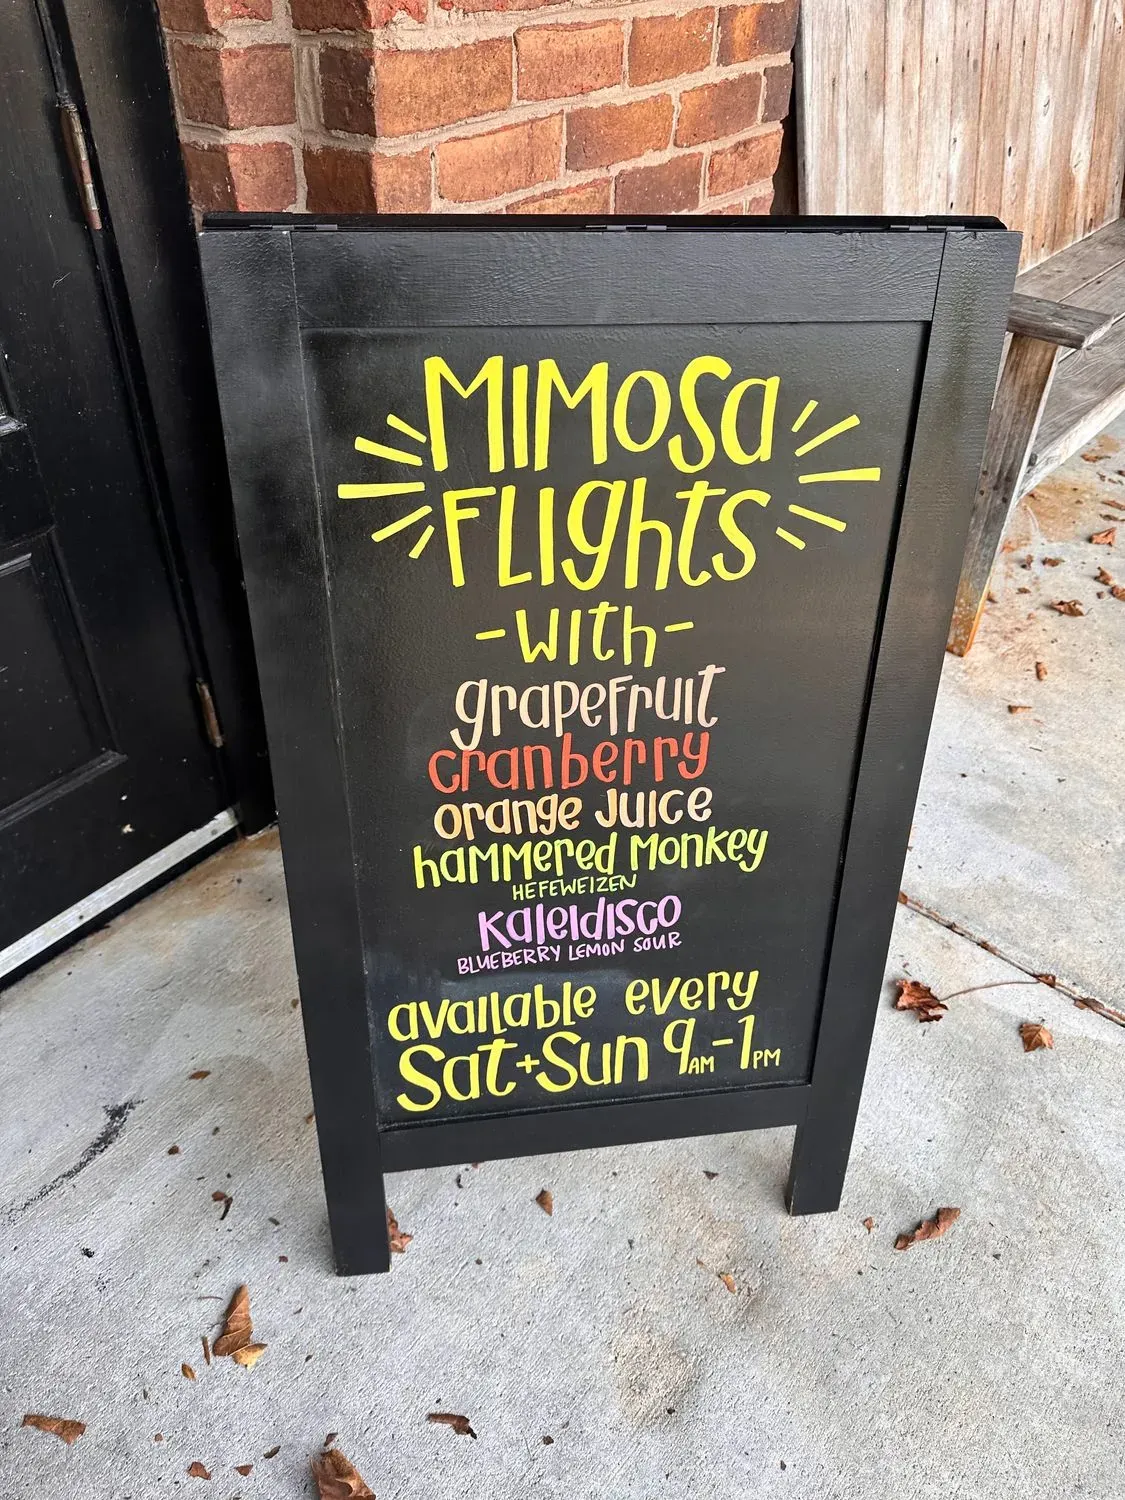 MIMOSA
FLIGHTS
-WITH-
grapefruit
cranberry
orange juice
hammered monkey
HEFEWEIZEN
Kaleidisco
BLUEBERRY LEMON SOUR
available every
Sat+Sun 9AM-1PM